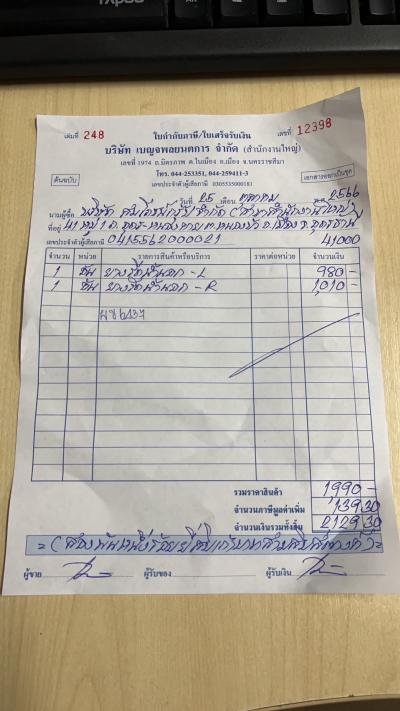 เล่มที่ 248 ใบกำกับภาษี/ใบเสร็จรับเงิน เลขที่ 12398
บริษัท เบญจพลยนตการ จำกัด (สำนักงานใหญ่)
เลขที่ 1974 ถ.มิตรภาพ ต.ในเมือง อ.เมือง จ.นครราชสีมา
โทร. 044-253351, 044-259411-3
ต้นฉบับ เลขประจำตัวผู้เสียภาษี 0305535000181 เอกสารออกเป็นชุด
วันที่ 25 เดือน ตุลาคม 2566
นามผู้ซื้อ บริษัท จำกัด
ที่อยู่ 41 อ.เมือง จ.อุดรธานี
เลขประจำตัวผู้เสียภาษี 0415562000021 41000
จำนวน หน่วย รายการสินค้าหรือบริการ ราคาต่อหน่วย จำนวนเงิน
1 อัน - L 980 -
1 อัน - R 1,010 -
6437
รวมราคาสินค้า 1,990 -
จำนวนภาษีมูลค่าเพิ่ม 139.30
จำนวนเงินรวมทั้งสิ้น 2,129.30
= (สองพันหนึ่งร้อยยี่สิบเก้าบาทสามสิบสตางค์) =
ผู้ขาย ผู้รับของ ผู้รับเงิน